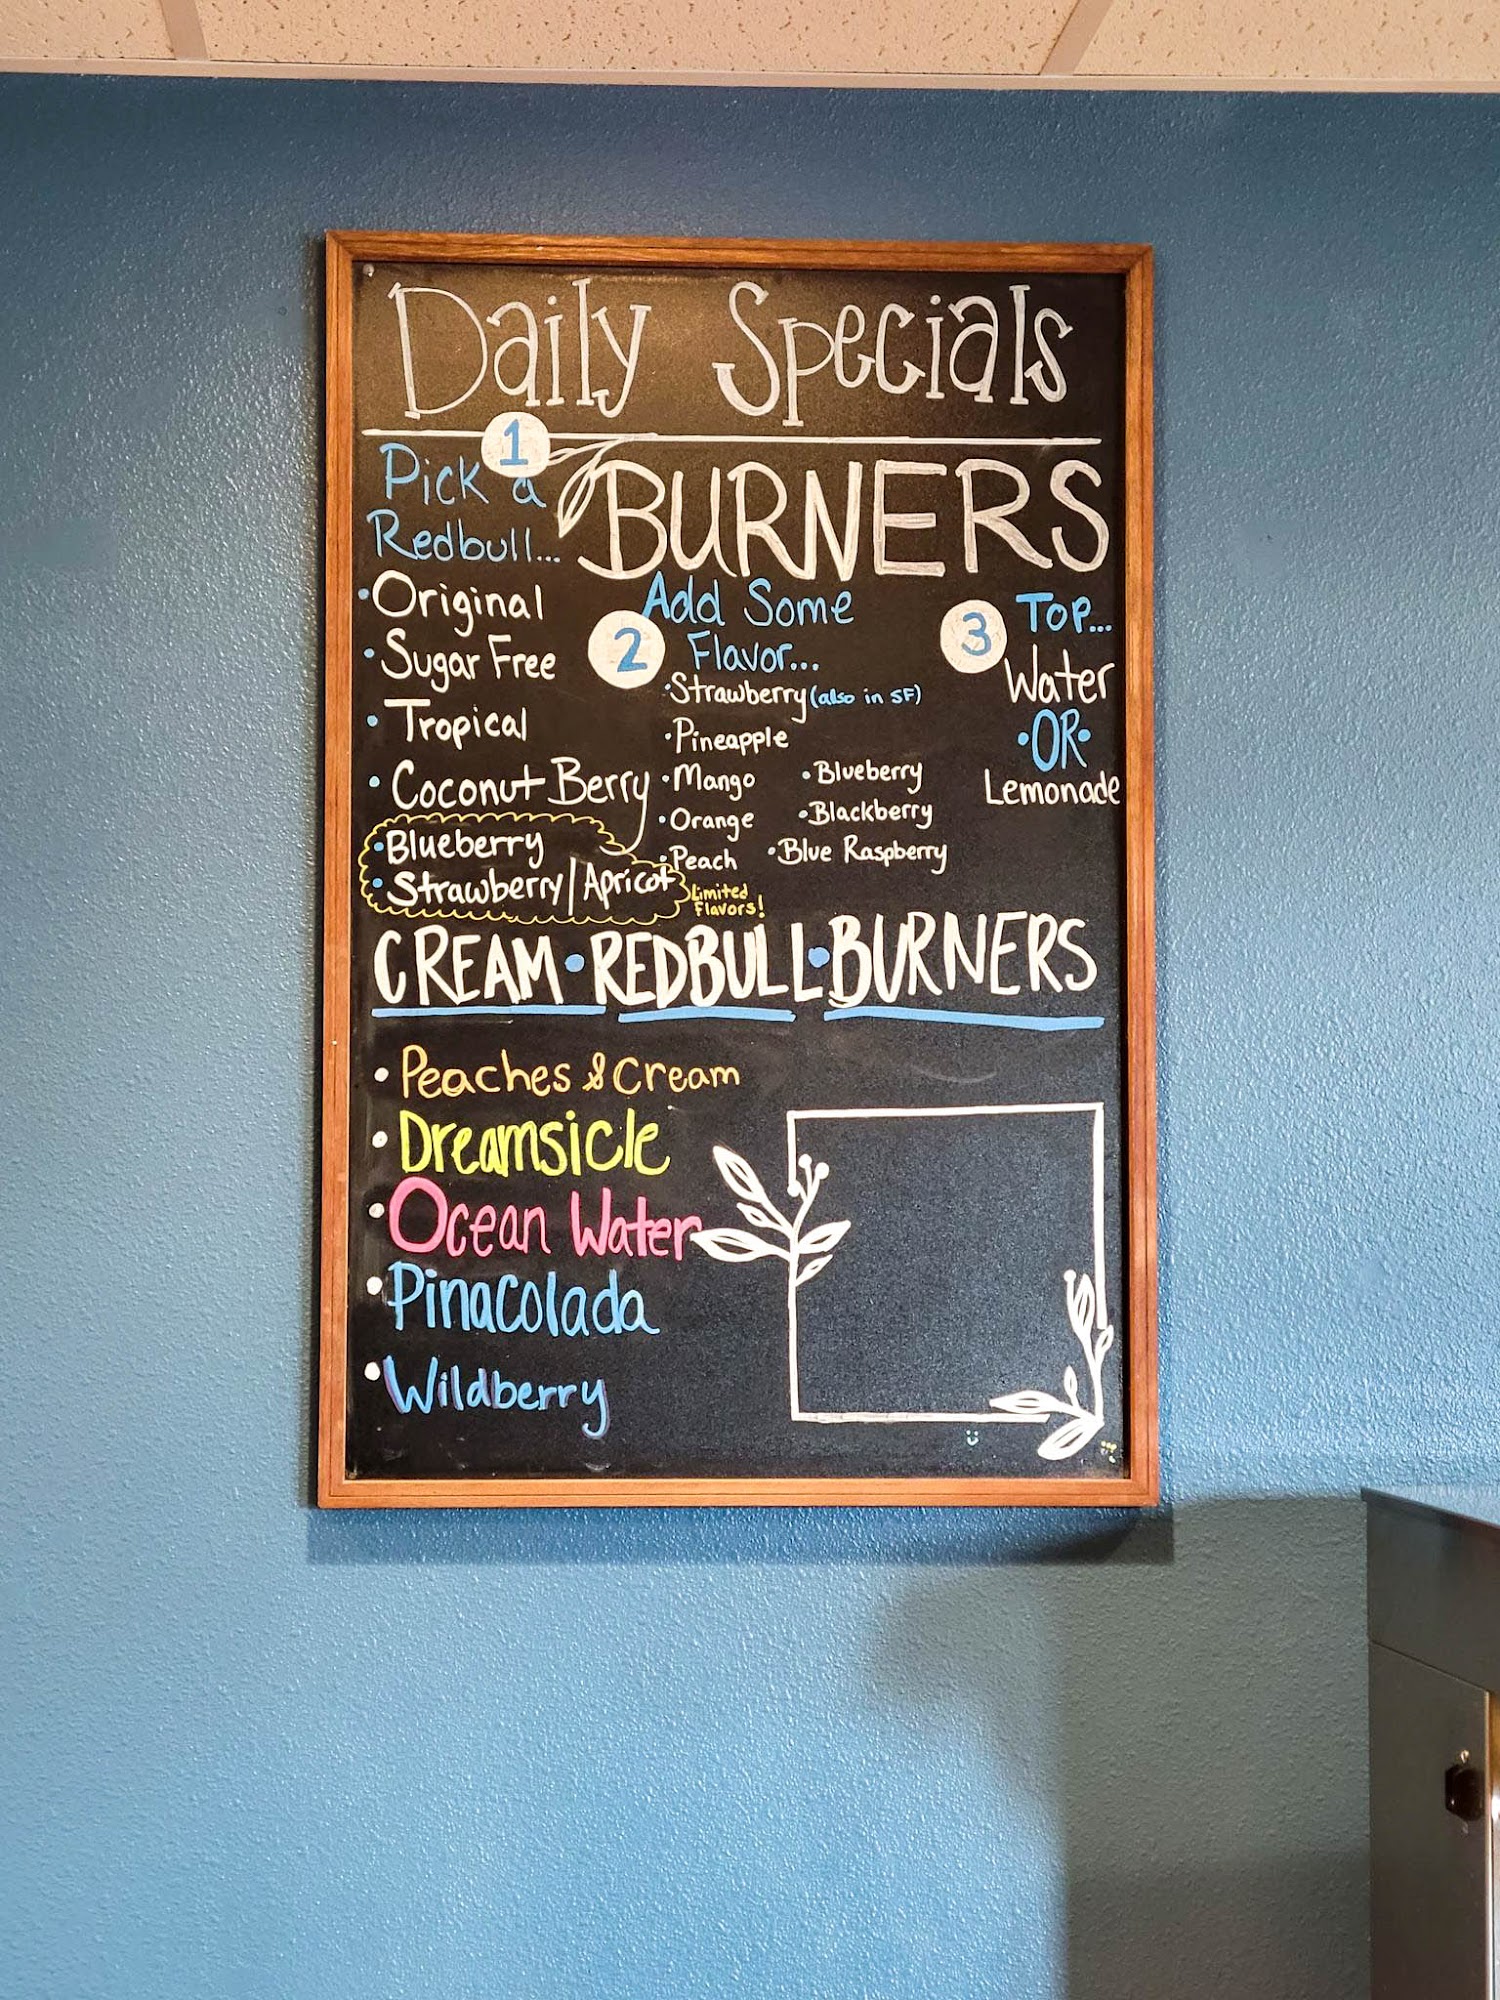 Daily Specials
BURNERS
1
Pick a
Redbull...
•Original
•Sugar Free
•Tropical
•Coconut Berry
•Blueberry
•Strawberry/Apricot
Limited
Flavors!
2
Add Some
Flavor...
•Strawberry (also in SF)
•Pineapple
•Mango
•Orange
•Peach
•Blueberry
•Blackberry
•Blue Raspberry
3
Top...
Water
•OR•
Lemonade
CREAM•REDBULL•BURNERS
•Peaches & Cream
•Dreamsicle
•Ocean Water
•Pinacolada
•Wildberry